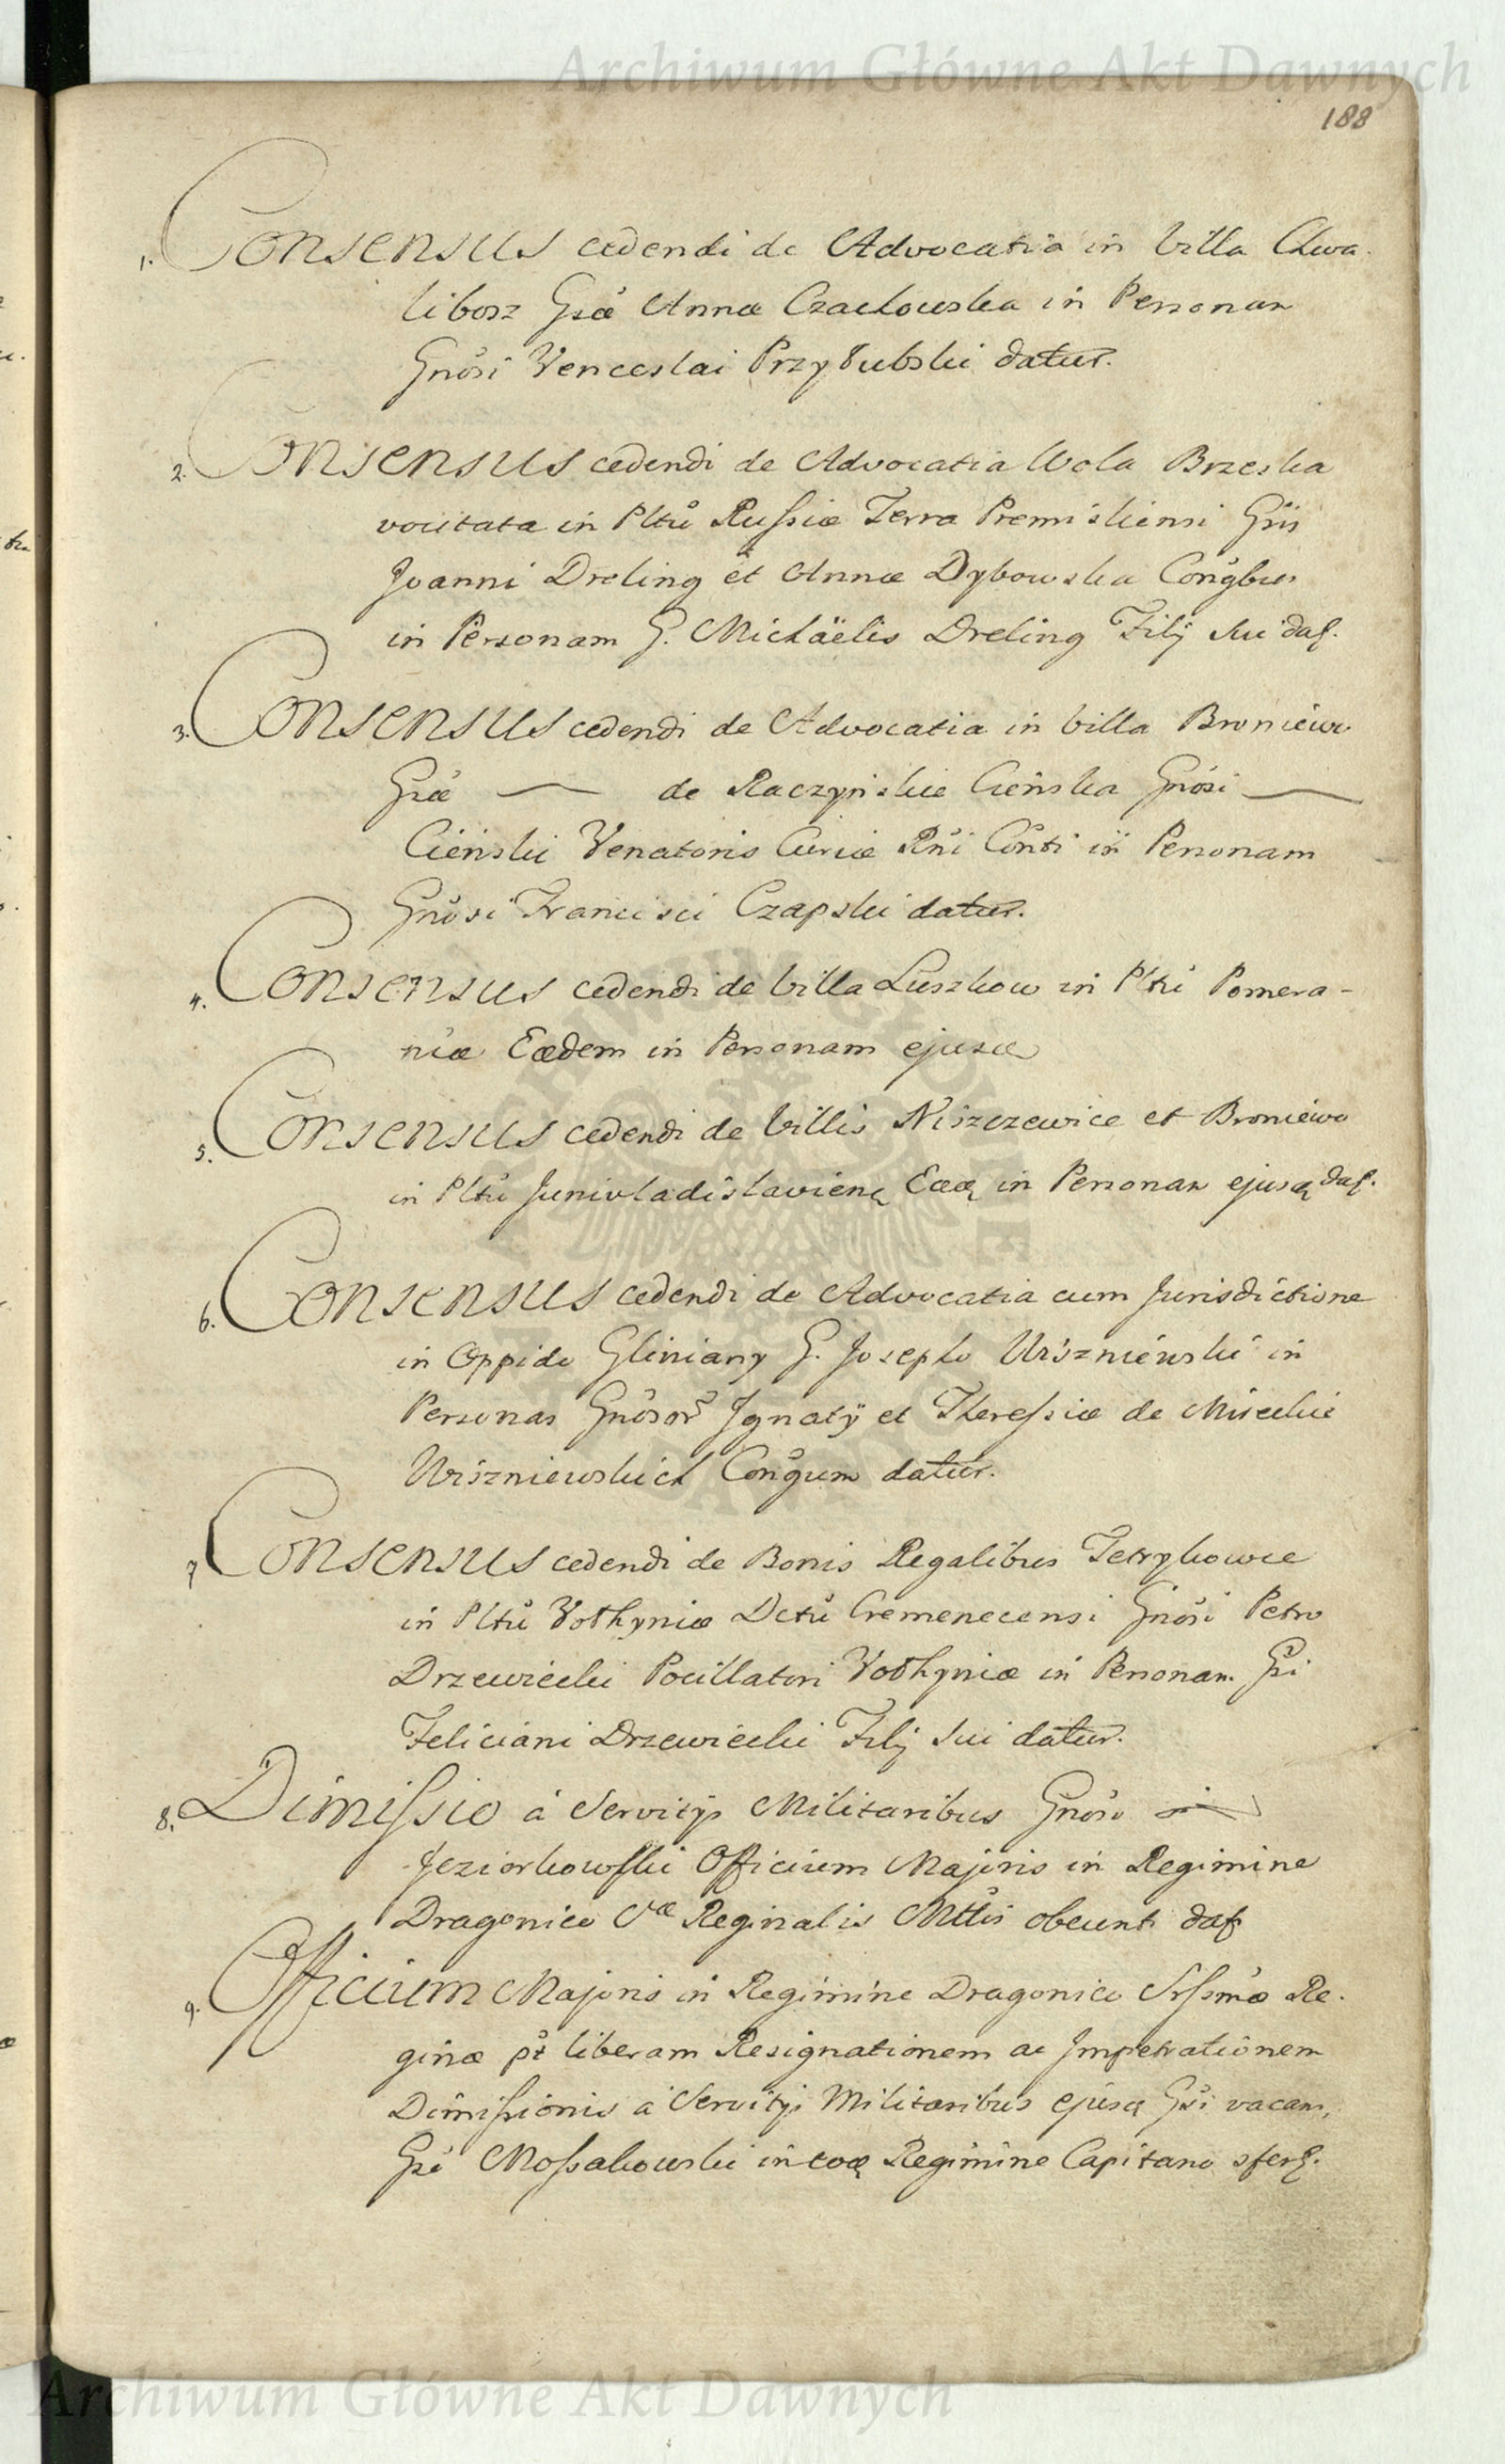 Archiwum Główne Akt Dawnych
188
1. Consensus cedendi de Advocatia in Villa Chwa-
libosz Gsæ Annæ Czachowska in Personam
Gnosi Venceslai Przyłubski datur.
2. Consensus cedendi de Advocatia Wola Brzeska
vocitata in Pltu Russiæ Terra Premisliensi Gsis
Joanni Dreling et Annæ Dybowska Conjgbus
in Personam G. Michäelis Dreling Filij sui dat.
3. Consensus cedendi de Advocatia in Villa Broniewo
Gsæ — de Raczynskie Cienska Gnosi —
Cienski Venatoris Curiæ Rni Conti in Personam
Gnosi Francisci Czapski datur.
4. Consensus cedendi de Villa Luszkow in Pltu Pomera-
niæ Eædem in Personam ejusd
5. Consensus cedendi de Villis Niszczewice et Broniewo
in Pltu Junivladislavien Eæd in Personam ejusd dat.
6. Consensus cedendi de Advocatia cum Jurisdictione
in Oppido Gliniany G. Josepho Uriszniewski in
Personas Gnosor Jgnatij et Theressiæ de Miseckie
Uriszniewskich Conjgum datur.
7 Consensus cedendi de Bonis Regalibus Tetrykowce
in Pltu Vołhyniæ Dctu Cremenecensi Gnosi Petro
Drzewiecki Pocillatori Vołhyniæ in Personam Gsi
Feliciani Drzewiecki Filij sui datur.
8. Dimissio á Servitijs Militaribus Gnoso —
Jeziorkowski Officium Majoris in Regimine
Dragonico Sæ Reginalis Mttis obeunti dat
9. Officium Majoris in Regimine Dragonico Srssmæ Re-
ginæ pt liberam Resignationem ac Jmpetrationem
Dimissionis a Servitijs Militaribus ejusd Gsi vacans,
Gsi Mossakowski in eod Regimine Capitano sfert.
Archiwum Główne Akt Dawnych